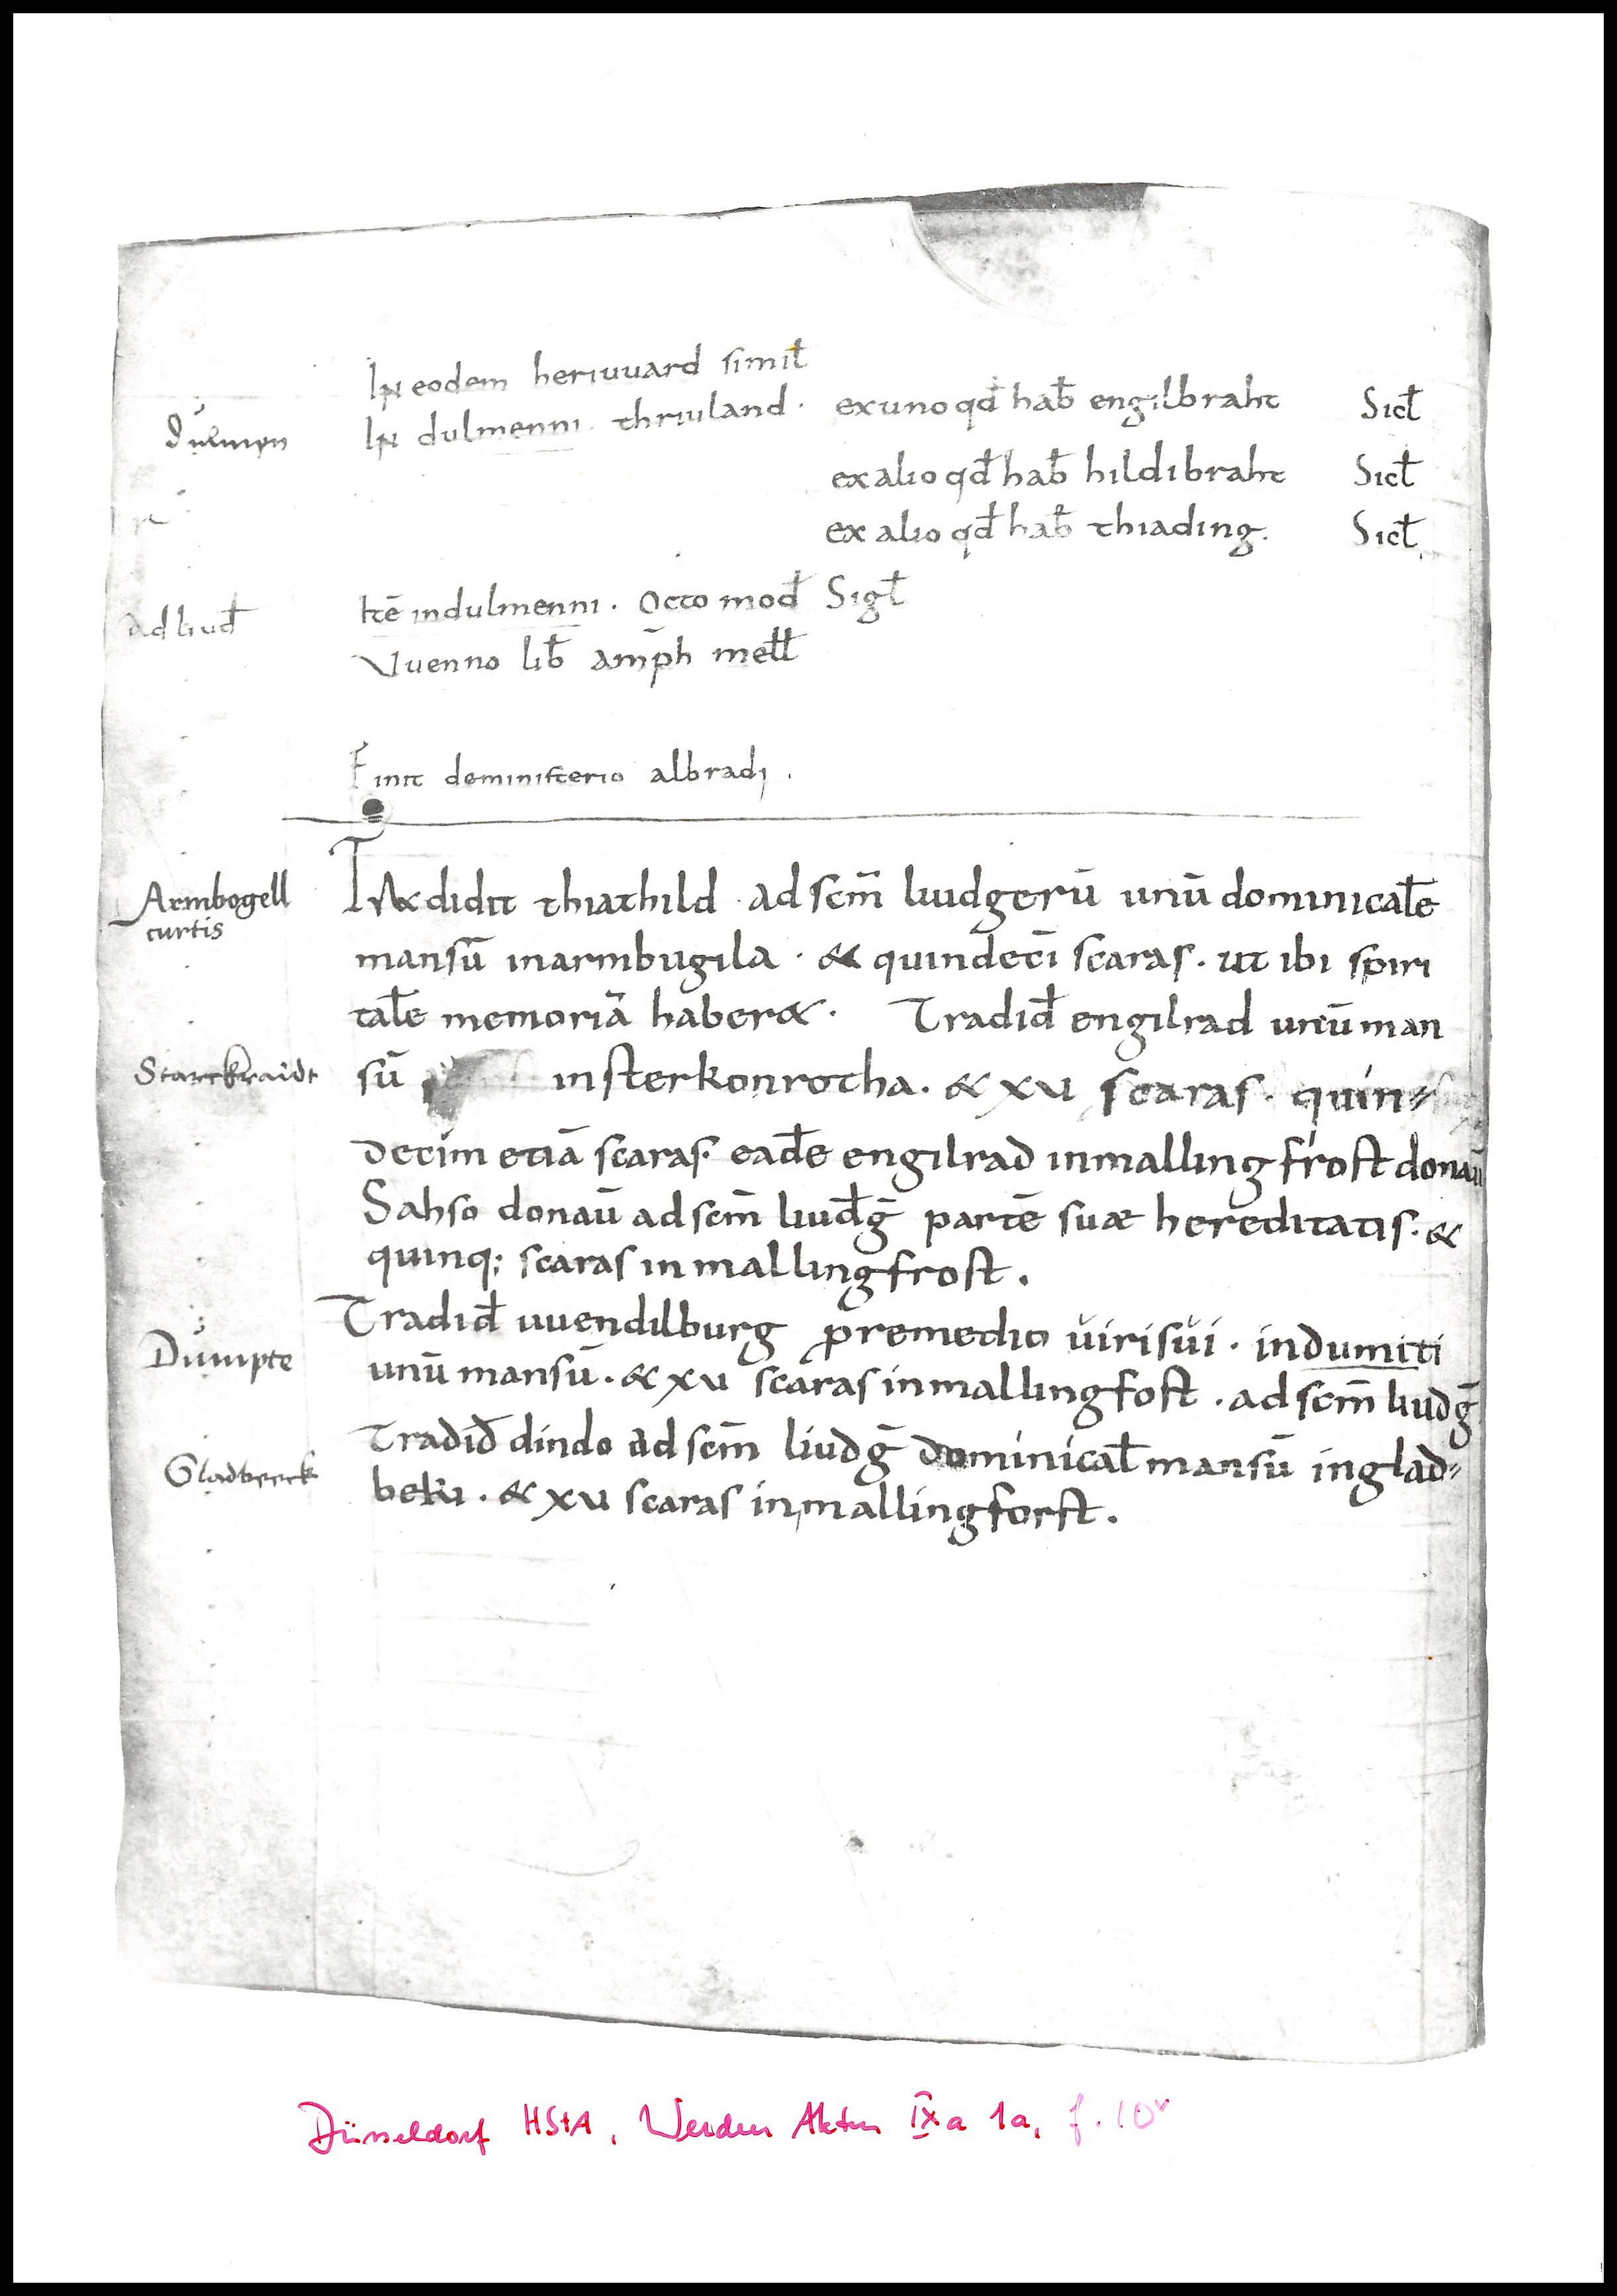 IN eodem heriuuard simil̄
dulmen IN dulmenni. thriuland. ex uno qd̄ hab̄ engilbraht Sicl̄
ex alio qd̄ hab̄ hildibraht Sicl̄
ex alio qd̄ hab̄ thiading. Sicl̄
ad liud̄ Itē in dulmenni. octo mod̄ Sigl̄
Vuenno lib̄ amp̄h mell̄
Finit de ministerio albradi.
Armbogell curtis
TRadidit thiathild ad scm̄ liudgerū unū dominical̄e
mansū in armbugila. & quindecī scaras. ut ibi spiri
tal̄e memoriā haber&. Tradid̄ engilrad unū man
Starckraidt sū in sterkonrotha. & xu scaras. quin⸗
decim etiā scaras. ead̄e engilrad in mallingfrost donaū
Sahso donaū ad scm̄ liud̄ḡ partē suæ hereditatis. &
quinq; scaras in mallingfrost.
Tradid̄ uuendilburg p̄ remedio uiri sui. in dumiti
Dumpte unū mansū. & xu scaras in mallingfost. ad scm̄ liudḡ
Tradid̄ dindo ad scm̄ liudḡ dominical̄ mansū in glad⸗
Gladbeeck beki. & xu scaras in mallingforst.
Düsseldorf HStA, Werden Akten IX a 1a, f. 10v